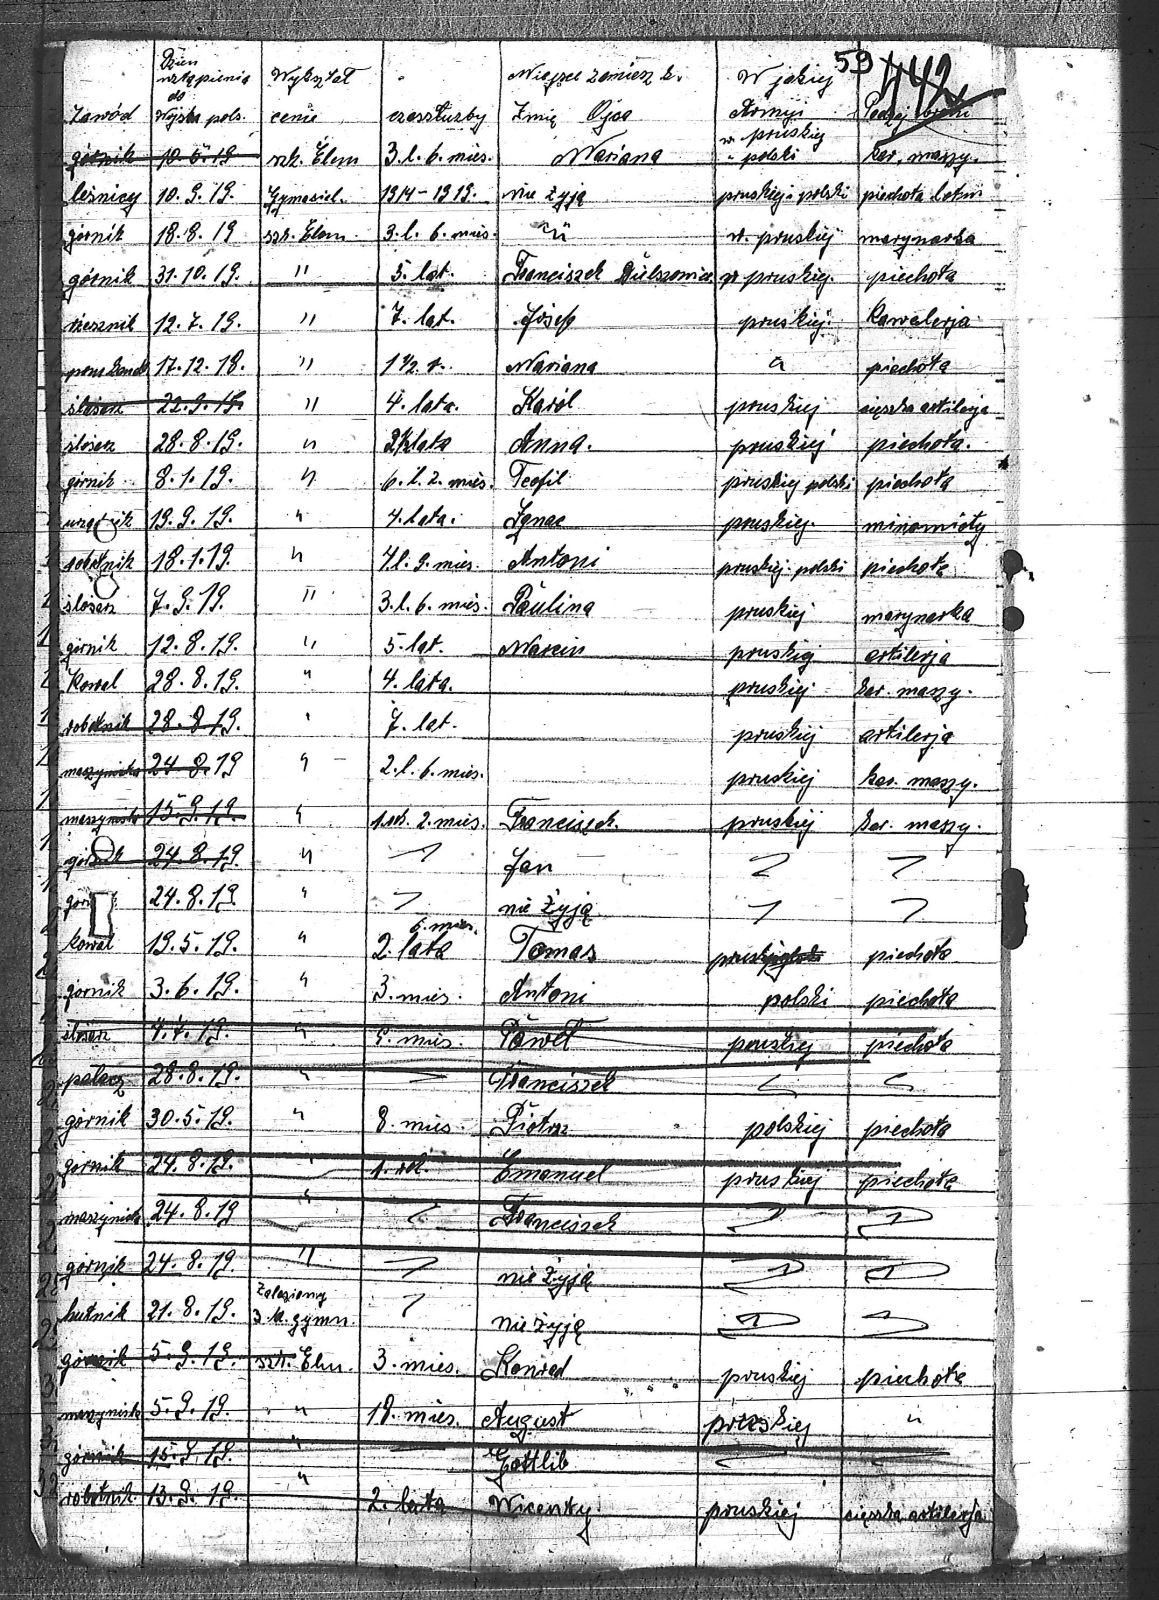 59 442
Zawód Dzień wstąpienia do Wojska pols. Wykształcenie czas służby Miejsce zamieszk. Imię Ojca W jakiej Armji Rodzaj broni
górnik 10.6.19 szk. Elem 3.l. 6. mies. Mariana w. pruskiej i polski kar. maszy.
leśniczy 10.9.19. Gymnasiel. 1914-1919. nie żyją pruskiej i polski piechota lotni
górnik 18.8.19 szk. Elem. 3.l. 6. mies. " w. pruskiej marynarka
górnik 31.10.19. " 5. lat. Franciszek w pruskiej. piechota
rzeznik 12.7.19. " 7. lat. Józef pruskiej. Kawalerja
17.12.18. " 1½ r. Mariana " piechota
ślosarz 22.9.19. " 4. lata. Karol pruskiej ciężka artilerja
slosarz 28.8.19. " 2½ lata Anna. pruskiej piechota.
górnik 8.1.19. " 6.l. 2. mies. Teofil pruskiej polski piechota
19.9.19. " 4. lata. Ignac pruskiej. minomioty
robotnik 18.1.19. " 4l. 9. mies. Antoni pruskiej. polski piechota
slosarz 7.9.19. " 3.l. 6. mies. Paulina pruskiej marynarka
górnik 12.8.19. " 5. lat. Marcin pruskiej artilerja
Kowal 28.8.19. " 4. lata. pruskiej kar. maszy.
robotnik 28.8.19. " 7. lat. pruskiej artilerja
maszynista 24.8.19 " 2.l. 6. mies. pruskiej kar. maszy.
maszynista 15.9.19. " 1.rok. 2. mies. Franciszek. pruskiej kar. maszy.
górnik 24.8.19. " Jan
24.8.19. " nie żyją
Kowal 19.5.19. " 2. lata 6. mies. Tomas pruskiej piechota
gornik 3.6.19. " 3. mies. Antoni polski piechota
slosarz 4.7.19. " mies. Paweł pruskiej piechota
palacz 28.8.19. " Franciszek
górnik 30.5.19. " 8. mies. Piotrz polskiej piechota
gornik 24.8.19. " 1. rok. Emanuel pruskiej piechota
maszynista 24.8.19 " Franciszek
górnik 24.8.19. " nie żyją
hutnik 21.8.19. 3. kl. gymn. nie żyją
górnik 5.9.19. szk. Elm. 3. mies. Konrad pruskiej piechota
maszynista 5.9.19. " 18. mies. August pruskiej "
górnik 15.9.19. " Gottlib
robotnik 13.9.19. " 2. lata Wicenty pruskiej ciężka artilerja